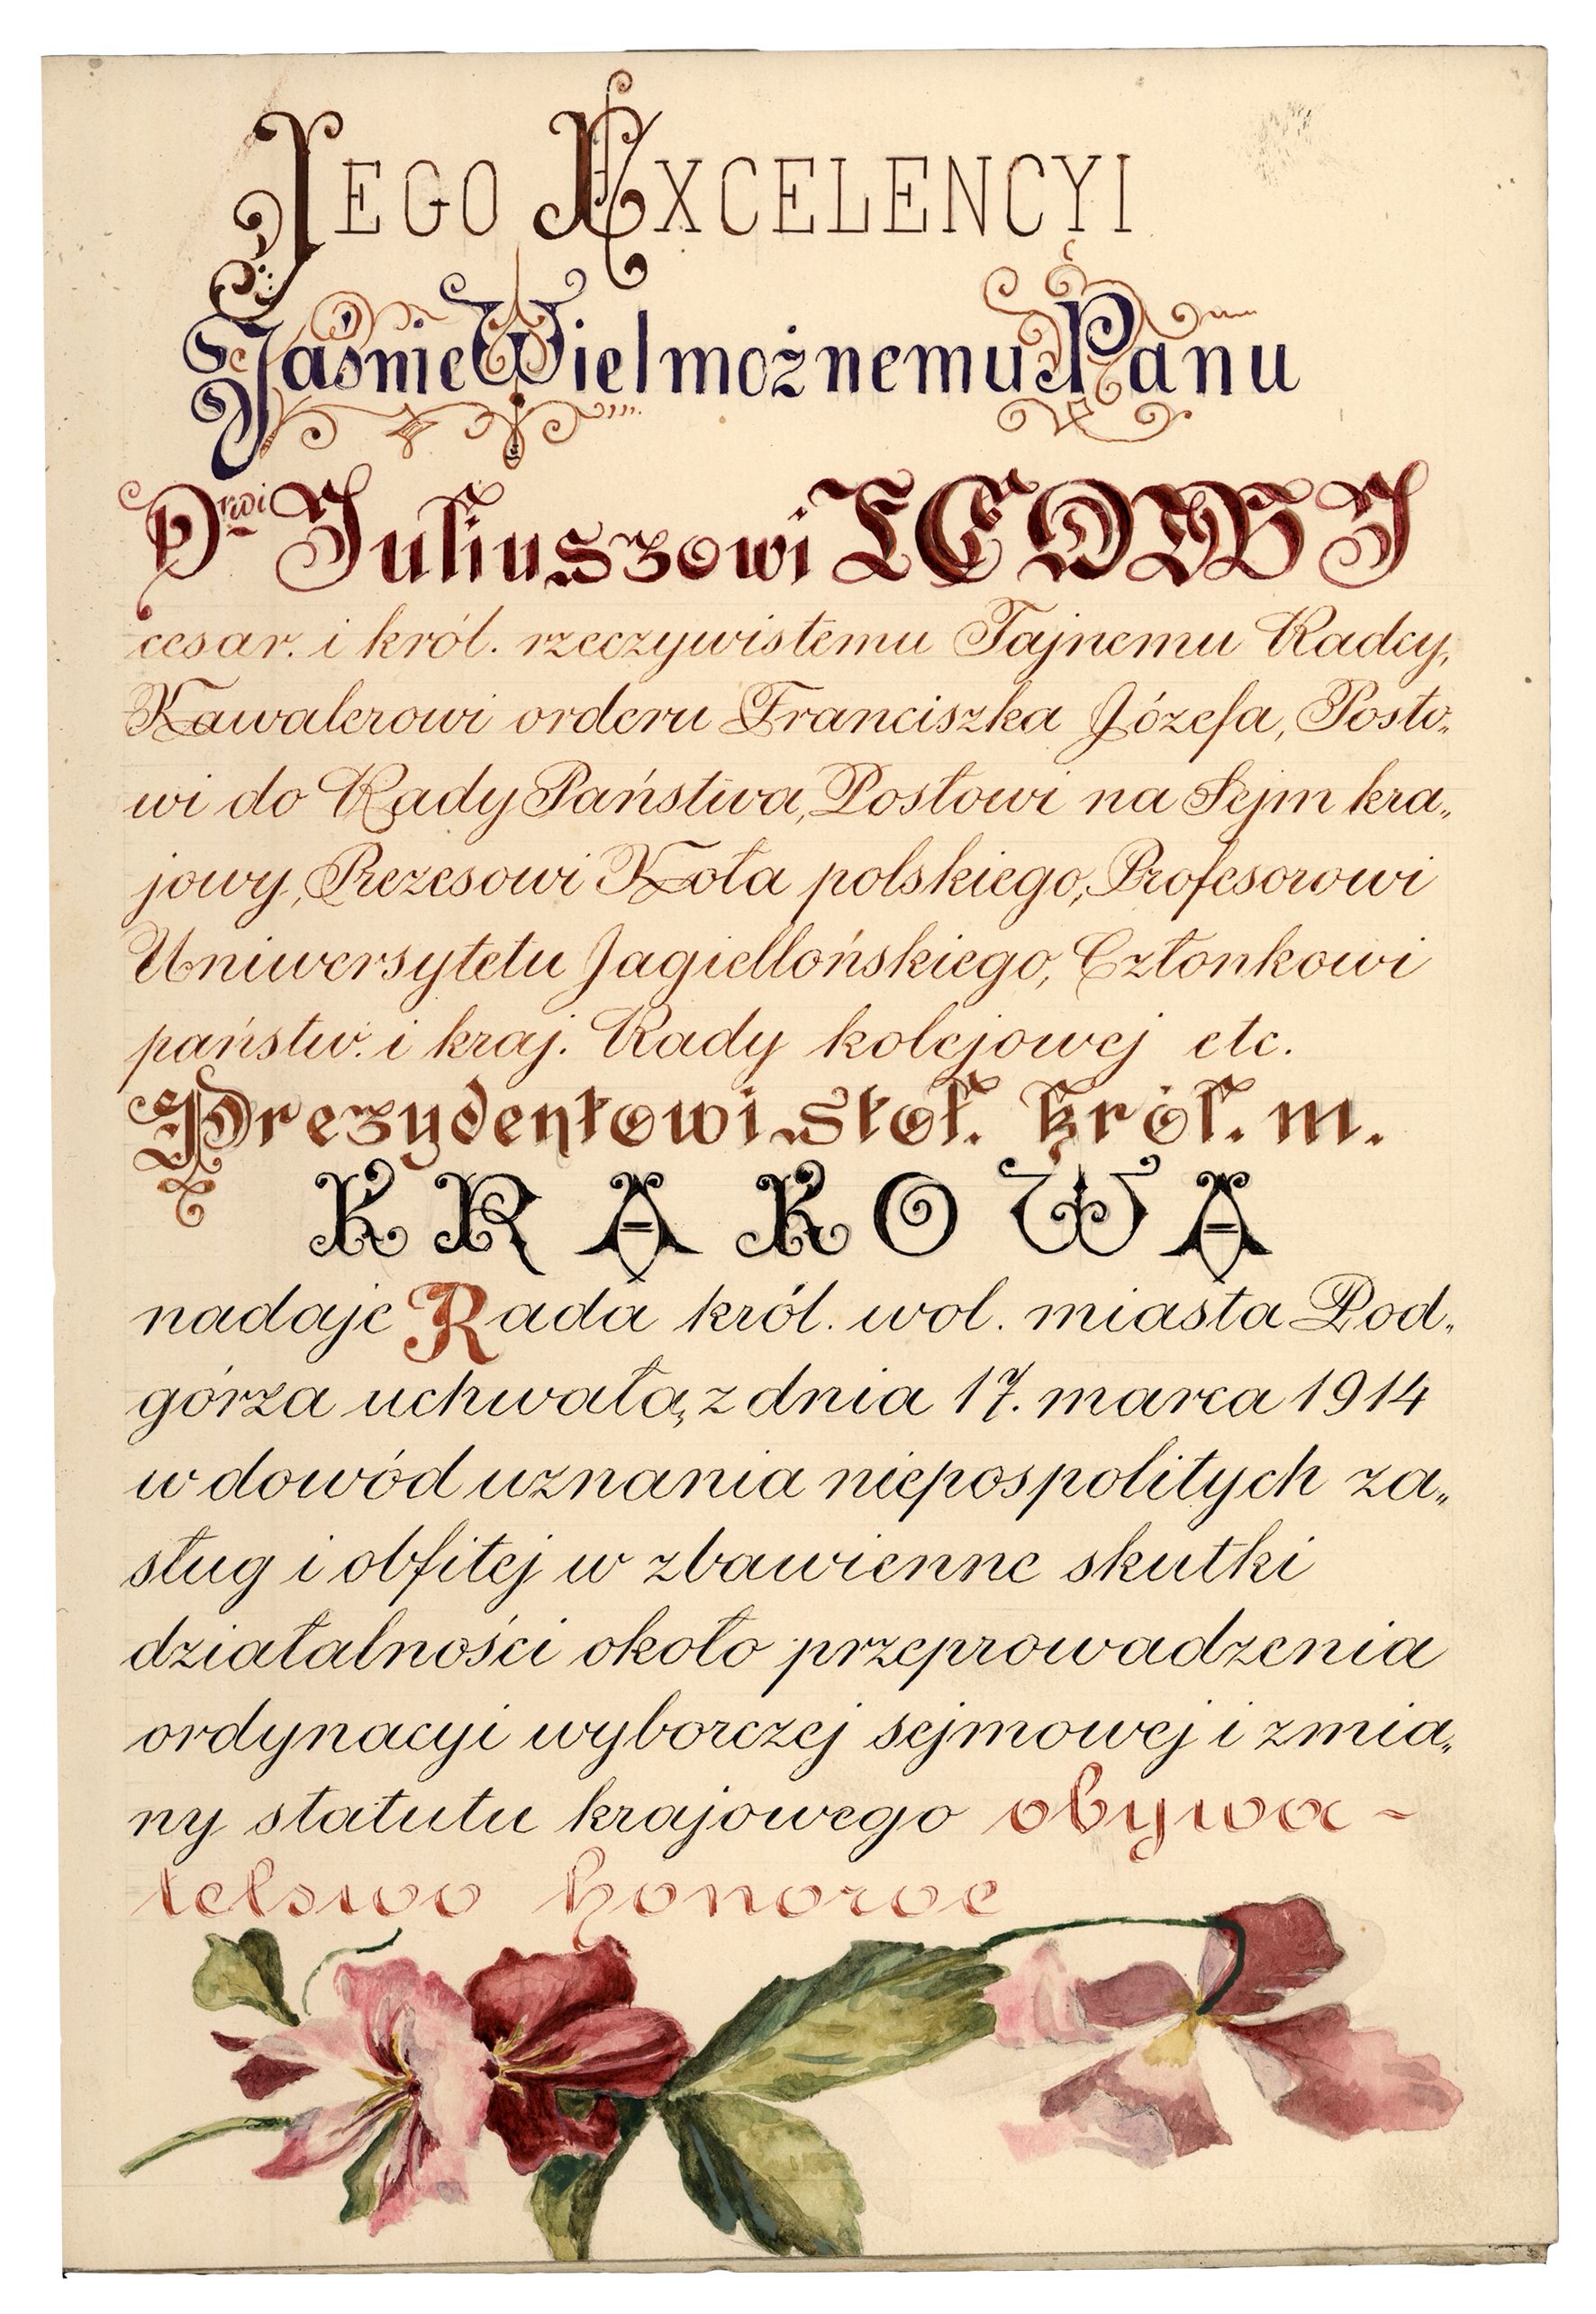 JEGO EXCELENCYI
Jaśnie Wielmożnemu Panu
Drwi Juliuszowi LEOWI
cesar. i król. rzeczywistemu Tajnemu Radcy,
Kawalerowi orderu Franciszka Józefa, Posło„
wi do Rady Państwa, Posłowi na Sejm kra„
jowy, Prezesowi Koła polskiego, Profesorowi
Uniwersytetu Jagiellońskiego, Członkowi
państw. i kraj. Rady kolejowej etc.
Prezydentowi stoł. król. m.
KRAKOWA
nadaje Rada król. wol. miasta Pod„
górza uchwałą z dnia 17. marca 1914
w dowód uznania niepospolitych za„
sług i obfitej w zbawienne skutki
działalności około przeprowadzenia
ordynacyi wyborczej sejmowej i zmia„
ny statutu krajowego obywa-
telswo honorowe